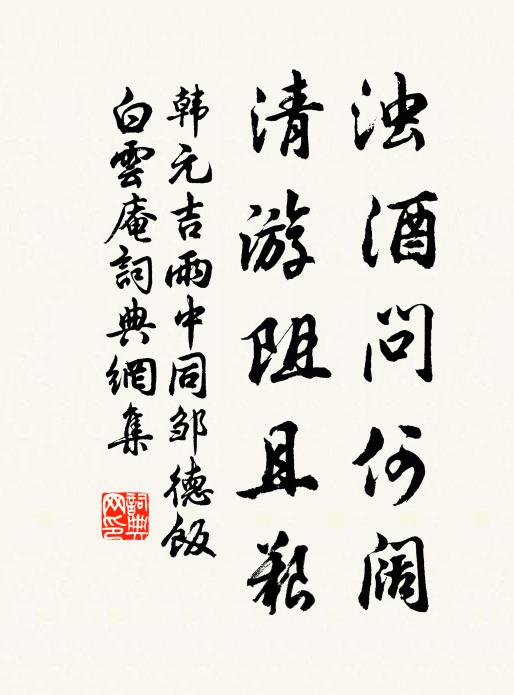 浊酒问何阔
清游阻且艰
韩元吉雨中同邹德饭
白雲庵詞典網集
詞典
网印